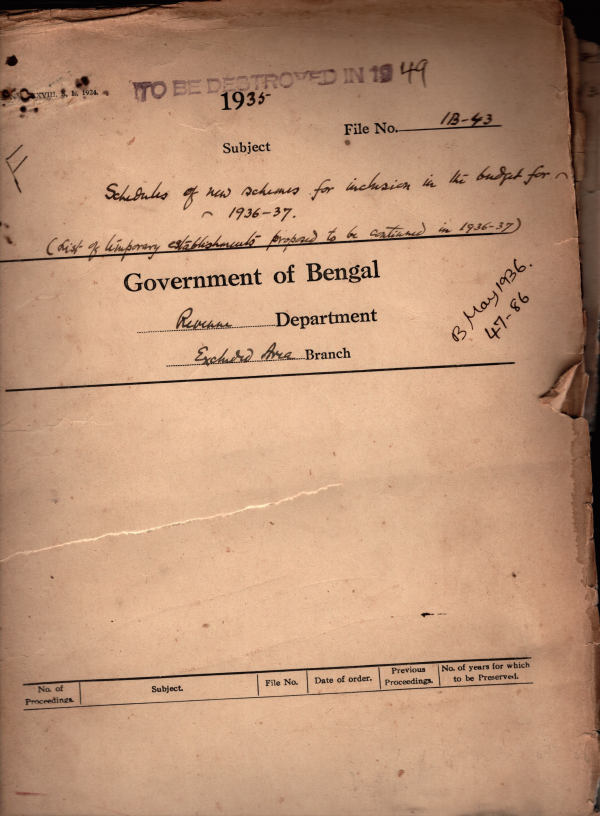 XXVIII. 1924.
TO BE DESTROYED IN 1949
1935
File No. 1B-43
Subject
Schedules of new schemes for inclusion in the budget for
1936-37.
(List of temporary establishments proposed to be continued in 1936-37)
Government of Bengal
Revenue Department
Excluded Area Branch
B May 1936.
47-86
No. of Proceedings.
Subject.
File No.
Date of order.
Previous Proceedings.
No. of years for which to be Preserved.